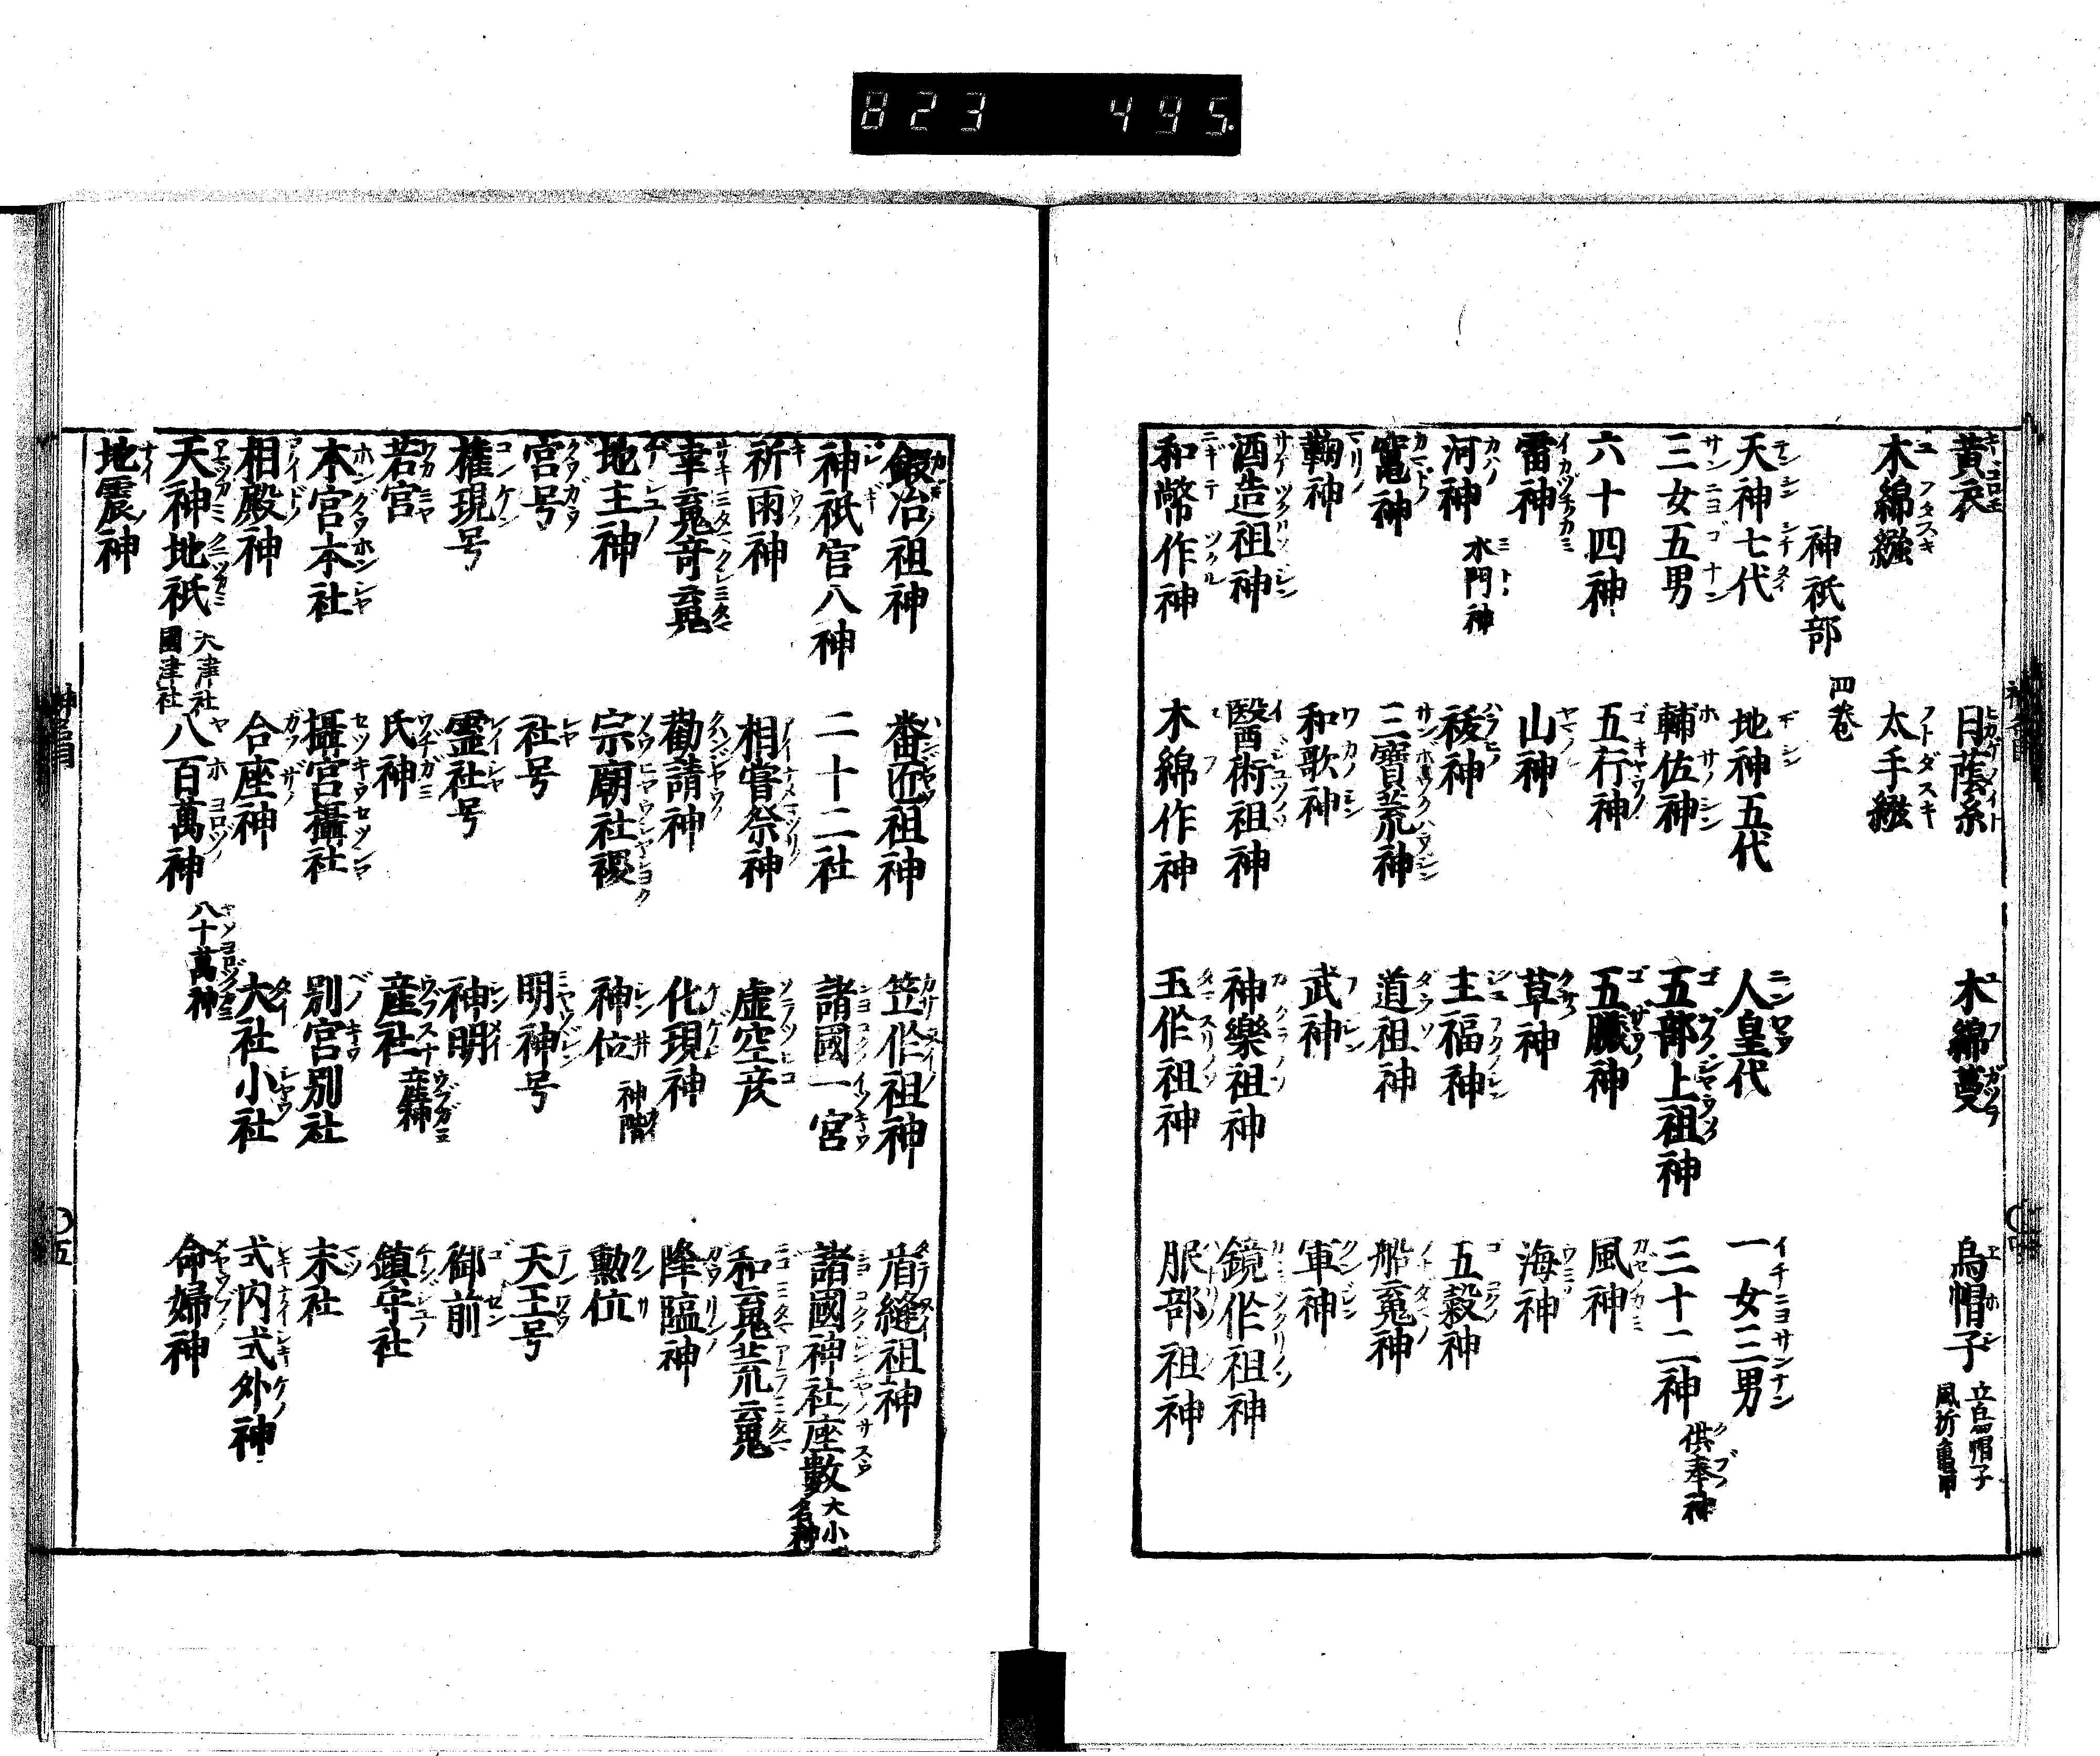 823 495.
黄衣 日蔭糸 木綿蔓 烏帽子 立烏帽子 風折 亀甲
木綿繦 太手繦
神祇部 四卷
天神七代 地神五代 人皇代 一女三男
三女五男 輔佐神 五部上祖神 三十二神 供奉神
六十四神 五行神 五臓神 風神
雷神 山神 草神 海神
河神 水門神 祓神 主福神 五穀神
竃神 三寶荒神 道祖神 船霊神
鞠神 和歌神 武神 軍神
酒造祖神 醫術祖神 神樂祖神 鏡作祖神
和幣作神 木綿作神 玉作祖神 服部祖神
鍛冶祖神 番匠祖神 笠作祖神 盾縫祖神
神祇官八神 二十二社 諸國一宮 諸國神社座數 大小 名神
祈雨神 相嘗祭神 虚空彦 和魂荒魂
幸魂奇魂 勸請神 化現神 降臨神
地主神 宗廟社稷 神位 神階 勲位
宮号 社号 明神号 天王号
權現号 霊社号 神明 御前
若宮 氏神 産社 産神 鎮守社
本宮本社 攝宮攝社 別宮別社 末社
相殿神 合座神 大社小社 式内式外神
天神地祇 天津社 國津社 八百萬神 八十萬神 命婦神
地震神
五